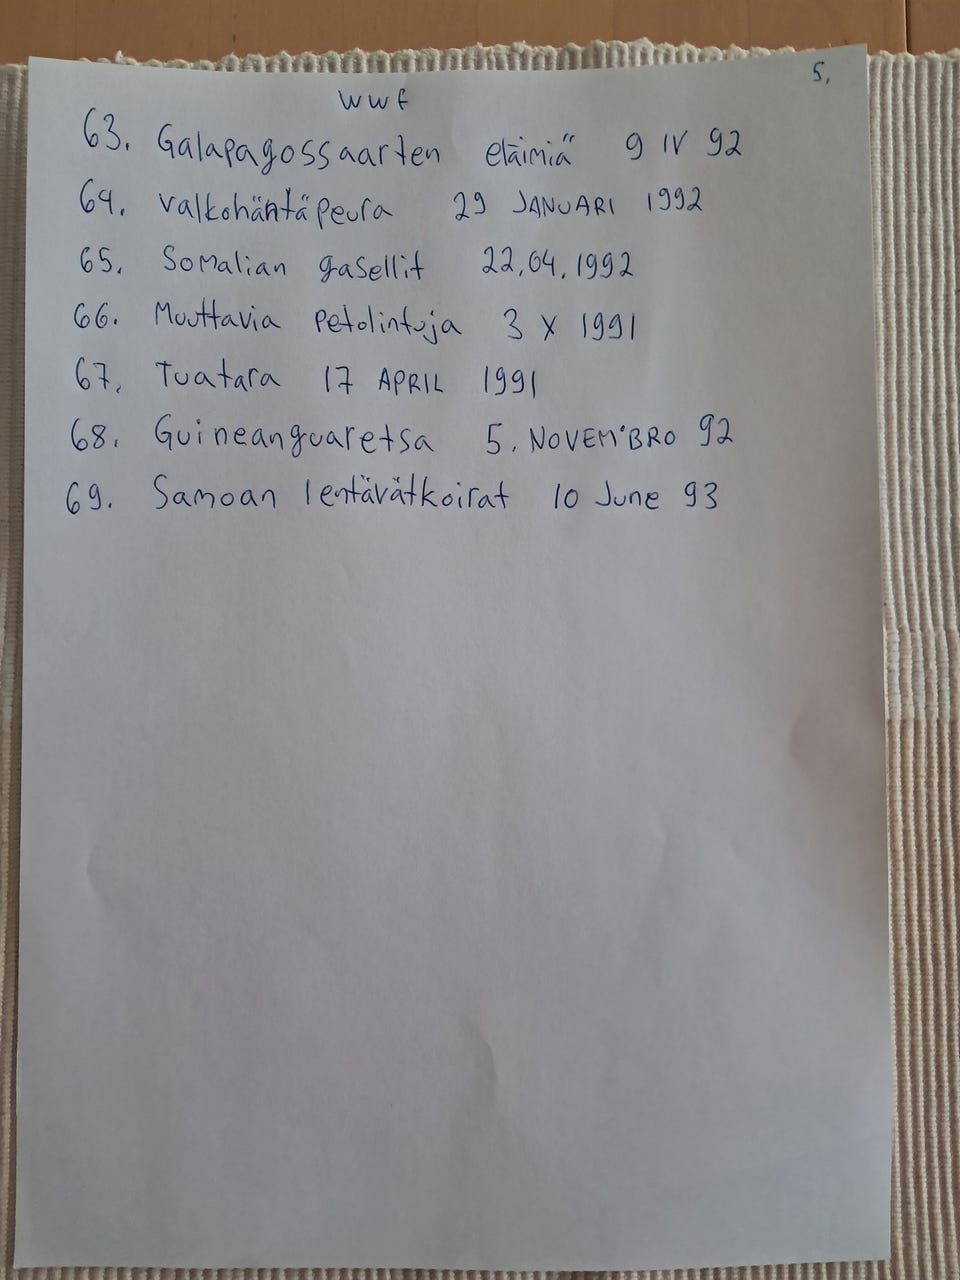 5.
WWf
63. Galapagossaarten eläimiä 9 IV 92
64. Valkohäntäpeura 29 JANUARI 1992
65. Somalian gasellit 22.04.1992
66. Muuttavia petolintuja 3 X 1991
67. Tuatara 17 APRIL 1991
68. Guineanguaretsa 5. NOVEMBRO 92
69. Samoan lentävätkoirat 10 June 93